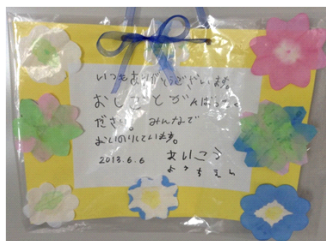 いつもありがとうございます。
おしごとがんばってく
ださい。みんなで
おいのりしています。
2013.6.6 あいこう
ようちえん